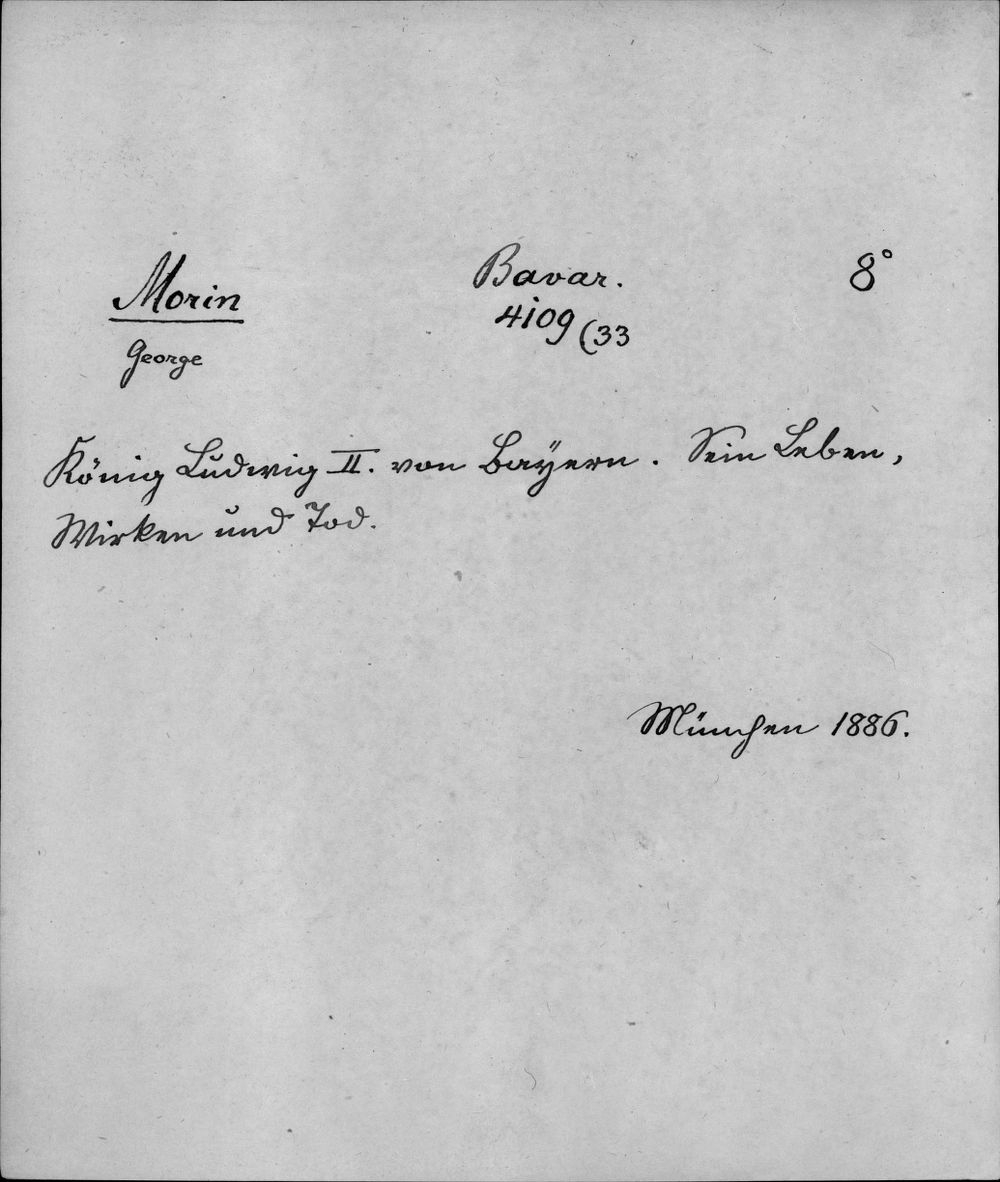 Morin
George
Bavar.
4109 (33
8°
König Ludwig II. von Bayern. Sein Leben,
Wirken und Tod.
München 1886.